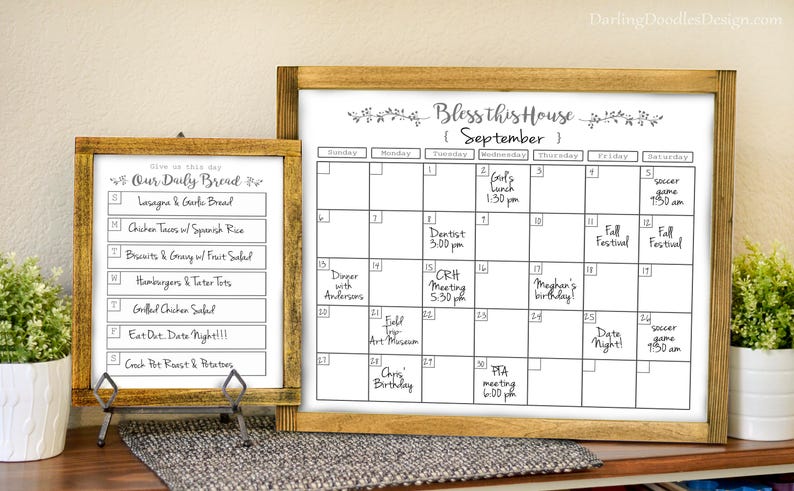 DarlingDoodlesDesign.com
Give us this day
Our Daily Bread
S Lasagna & Garlic Bread
M Chicken Tacos w/ Spanish Rice
T Biscuits & Gravy w/ Fruit Salad
W Hamburgers & Tater Tots
T Grilled Chicken Salad
F Eat Out...Date Night!!!
S Crock Pot Roast & Potatoes
Bless this House
{ September }
Sunday Monday Tuesday Wednesday Thursday Friday Saturday
1 2 3 4 5
Girl's
Lunch
1:30 pm
soccer
game
9:30 am
6 7 8 9 10 11 12
Dentist
3:00 pm
Fall
Festival
Fall
Festival
13 14 15 16 17 18 19
Dinner
with
Andersons
CRH
Meeting
5:30 pm
Meghan's
birthday!
20 21 22 23 24 25 26
Field
Trip-
Art Museum
Date
Night!
soccer
game
9:30 am
27 28 29 30
Chris'
Birthday
PTA
meeting
6:00 pm